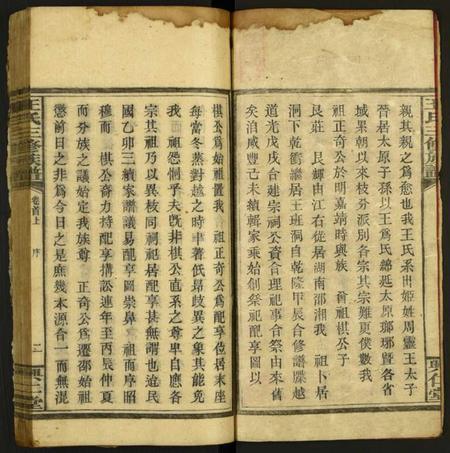 親其親之為愈也我王氏系出姬姓周靈王太子
晉居太原子孫以王為氏總延太原瑯琊暨各省
城杲朝以來枝分派別各宗其宗難更僕數我
祖正奇公於明嘉靖時與族 耆祖棋公子
艮莊 艮輝由江右從居湖南邵湘我 祖卜居
洞下乾衝濤居王班洞自乾隆甲辰合修譜牒越
道光戊戌合建宗祠公資合理祀事合祭由來舊
矣洎咸豐己未續輯家乘始創祭祀配享圖以
棋公為始祖置我 祖正奇公為配享位居末座
每當冬蒸對越之時聿著低昂歧異之象其能免
我 祖怨恫乎夫既非棋公直系之尊卑自應各
宗其祖乃以異枝同祠祀居配享甚無謂也迨民
國乙卯三續家譜議易配享圖崇鼻 祖而序昭
穆而 棋公裔力持配享搆訟連年至丙辰仲夏
而分族之議始定我族尊 正奇公為遷邵始祖
懲前日之非為今日之是庶幾本源合一而無混
王氏三修族譜
卷首上 序
二
興仁堂
王氏三修族譜
興仁堂